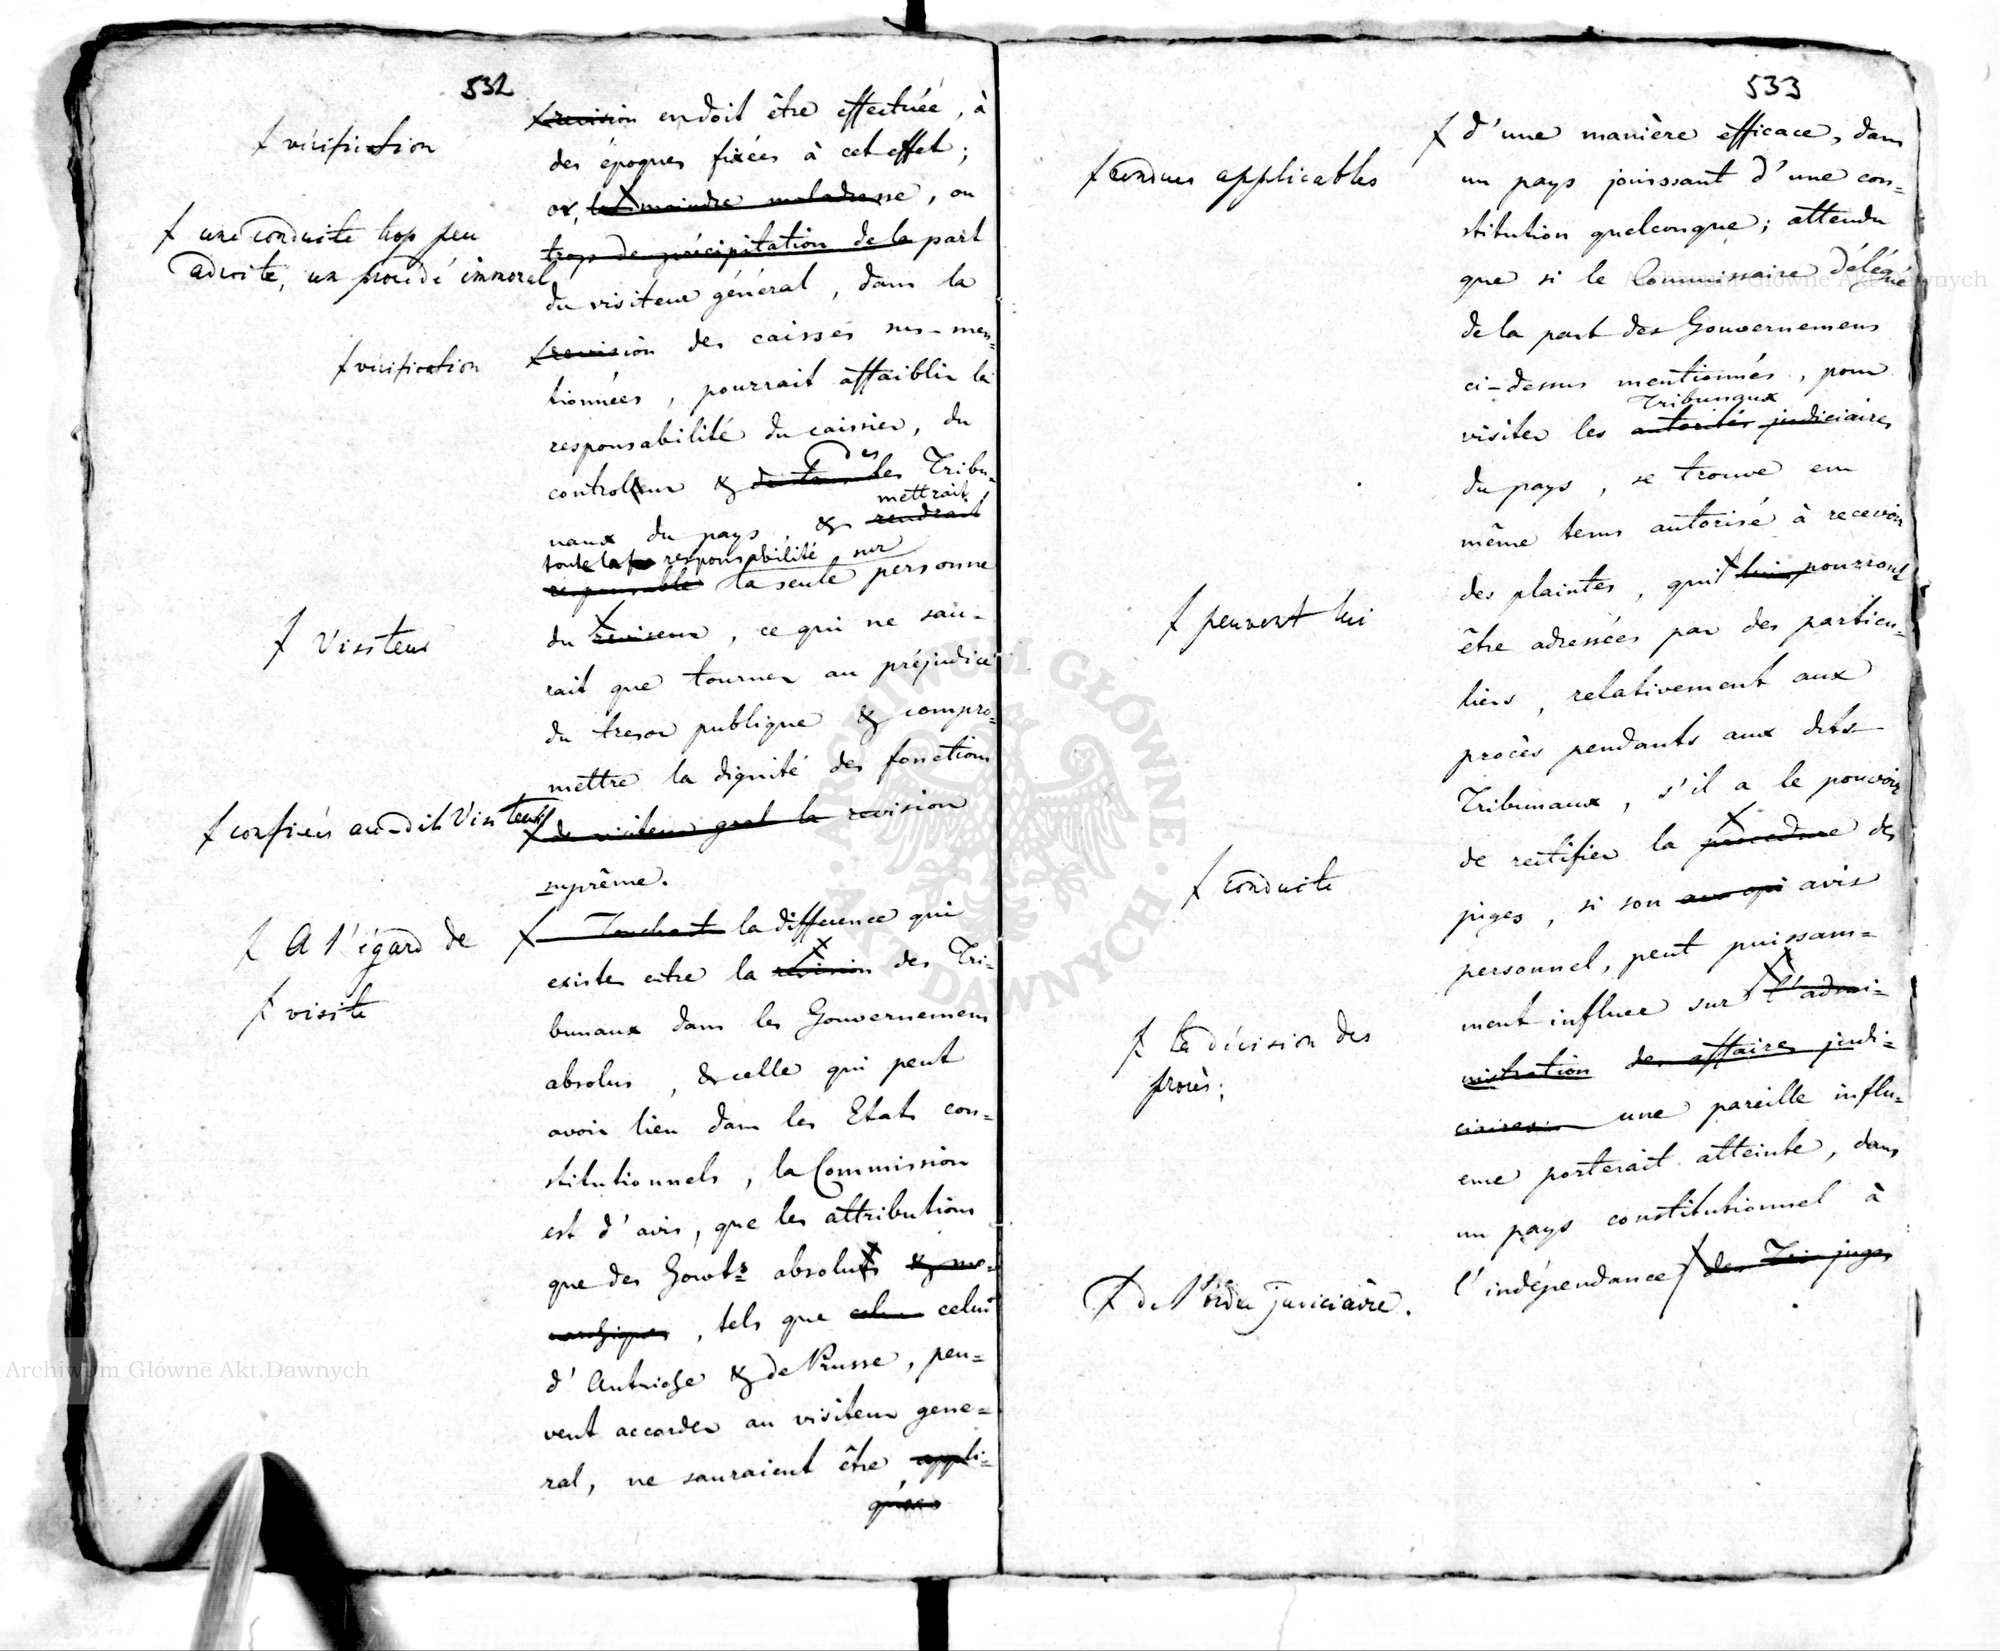 532
ꝉ vérification
ꝉ une conduite trop peu
adroite, un procédé immoral
ꝉ vérification
ꝉ Visiteur
ꝉ confiées au-dit Visiteur
ꝉ A l'égard de
ꝉ visite
revision en doit être effectuée, à
des époques fixées à cet effet;
or, la moindre maladresse, ou
trop de précipitation de la part
du visiteur général, dans la
revision des caisses sus-men-
tionnées, pourrait affaiblir la
responsabilité du caissier, du
des
controleur & de tous les Tribu-
mettrait
naux du pays, & rendrait
toute la responsabilité sur
responsable la seule personne
du reviseur, ce qui ne sau-
rait que tourner au préjudice
du tresor publique & compro-
mettre la dignité des fonctions
de visiteur gral la revision
suprême.
Touchant la différence qui
existe entre la revision des Tri-
bunaux dans les Gouvernemens
absolus, & celle qui peut
avoir lieu dans les Etats con-
stitutionnels, la Commission
est d'avis, que les attributions
que des Gowts absoluts & mo-
narchiques, tels que celui
d'Autriche & de Prusse, peu-
vent accorder au visiteur gene-
ral, ne sauraient être appli-
quées
533
ꝉ rendues applicables
ꝉ peuvent lui
ꝉ conduite
ꝉ la décision des
procès;
ꝉ de l'ordre judiciaire.
ꝉ d'une manière efficace, dans
un pays jouissant d'une con-
stitution quelconque; attendu
que si le Commissaire délégué
de la part des Gouvernemens
ci-dessus mentionnés, pour
Tribunaux
visiter les autorités judiciaires
du pays, se trouve en
même tems autorisé à recevoir
des plaintes, qui lui pourront
être adressées par des particu-
liers, relativement aux
procès pendants aux dits
Tribunaux, s'il a le pouvoir
de rectifier la procedure des
juges, si son avis
personnel, peut puissam-
ment influer sur l'admi-
nistration des affaires judi-
ciaires: une pareille influ-
ence porterait atteinte, dans
un pays constitutionnel à
l'indépendance des Tri juges
Archiwum Główne Akt Dawnych
Archiwum Główne Akt Dawnych
ARCHIWUM GŁÓWNE AKT DAWNYCH